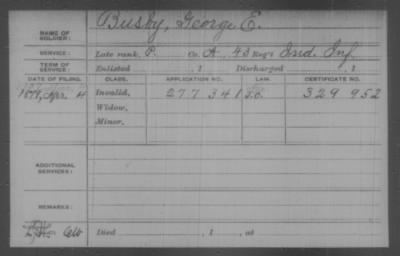 NAME OF SOLDIER: Busby, George E.
SERVICE: Late rank, P. Co. A, 43 Reg't Ind. Inf.
TERM OF SERVICE: Enlisted , 1 Discharged , 1
DATE OF FILING. CLASS. APPLICATION NO. LAW. CERTIFICATE NO.
1879, Apr. 4 Invalid, 277 341 329 952
Widow,
Minor,
ADDITIONAL SERVICES:
REMARKS:
Died , 1 , at